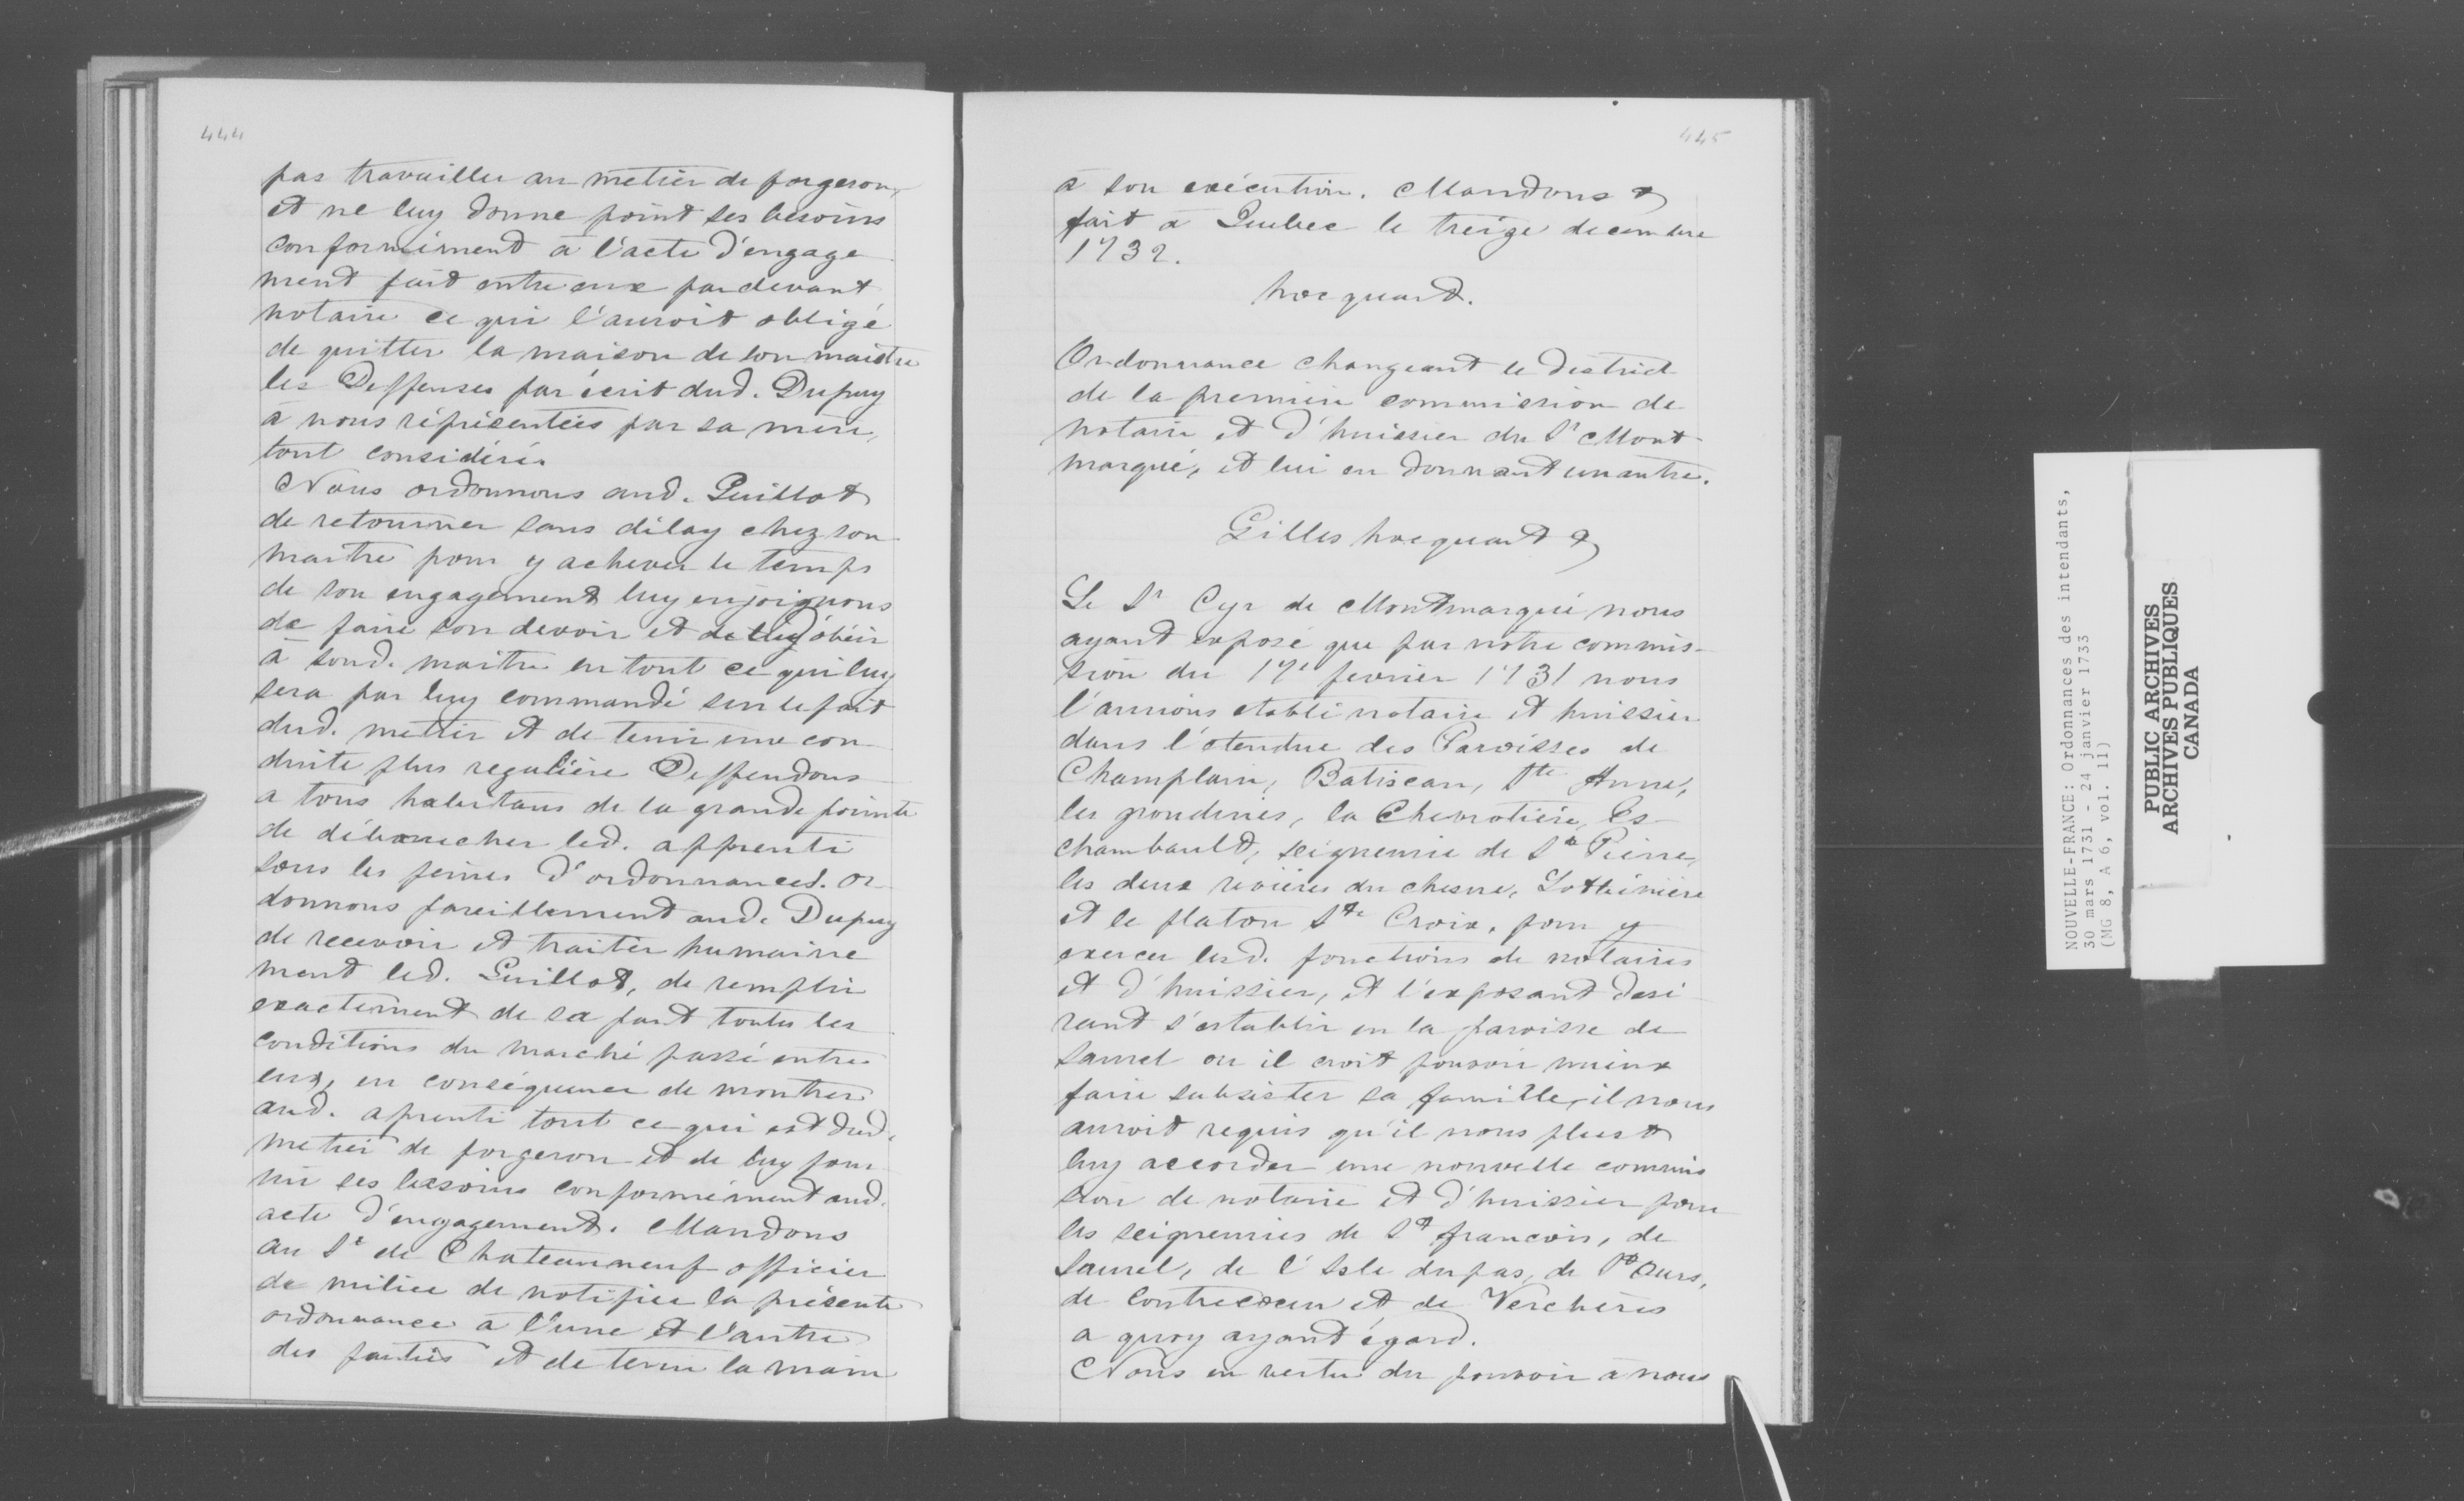 444
pas travailler au metier de forgeron,
et ne luy donne point ses besoins
conformément à l'acte d'engage
ment fait entre eux pardevant
notaire ce qui l'auroit obligé
de quitter la maison de son maistre
les Deffenses par écrit dud. Dupuy
à nous réprésentées par sa mère,
tout considéré.
Nous ordonnons aud. Guillot
de retourner sans délay chez son
maitre pour y achever le temps
de son engagement luy enjoignons
de faire son devoir et de obéir
à sond. maitre en tout ce qui luy
sera par luy commandé sur le fait
dud. métier et de tenir une con
duite plus regulière Deffendons
a tous habitans de la grande pointe
de débaucher led. apprenti
sous les peines d'ordonnances. Or
donnons pareillement aud. Dupuy
de recevoir et traiter humaine
ment led. Guillot, de remplir
exactement de sa part toutes les
conditions du marché passé entre
eux, en conséquence de montrer
aud. aprenti tout ce qui est dud.
metier de forgeron et de luy four
nir ses besoins conformément aud.
acte d'engagement. Mandons
au Sr de Chateauneuf officier
de milice de notifier la présente
ordonnance à l'une et l'autre
des parties et de tenir la main
445
à son exécution. Mandons &
fait à Quebec le treize decembre
1732.
hocquart.
Ordonnance changeant le district
de la premiere commission de
notaire et d'huissier du Sr Mont
marqué, et lui en donnant un autre.
Gilles hocquart &
Le Sr Cyr de Montmarqué nous
ayant exposé que par notre commis-
sion du 17e fevrier 1731 nous
l'aurions etabli notaire et huissier
dans l'étendue des Paroisses de
Champlain, Batiscan, Ste Anne,
les grondines, la Chevrotière, Es-
chambault, seigneurie de St Pierre,
les deux rivières du chesne, Lotbinière
et le platon Ste Croix, pour y
exercer lesd. fonctions de notaires
et d'huissier, et l'exposant desi
rant s'establir en la paroisse de
saurel ou il croit pouvoir mieux
faire subsister sa famille, il nous
auroit requis qu'il nous pleust
luy accorder une nouvelle commis
sion de notaire et d'huissier pour
les seigneuries de St francois, de
Saurel, de l'Isle dupas, de St Ours,
de Contrecoeur et de Verchères
a quoy ayant égard.
Nous en vertu du pouvoir à nous
NOUVELLE-FRANCE: Ordonnances des intendants,
30 mars 1731 - 24 janvier 1733
(MG 8, A 6, vol. 11)
PUBLIC ARCHIVES
ARCHIVES PUBLIQUES
CANADA